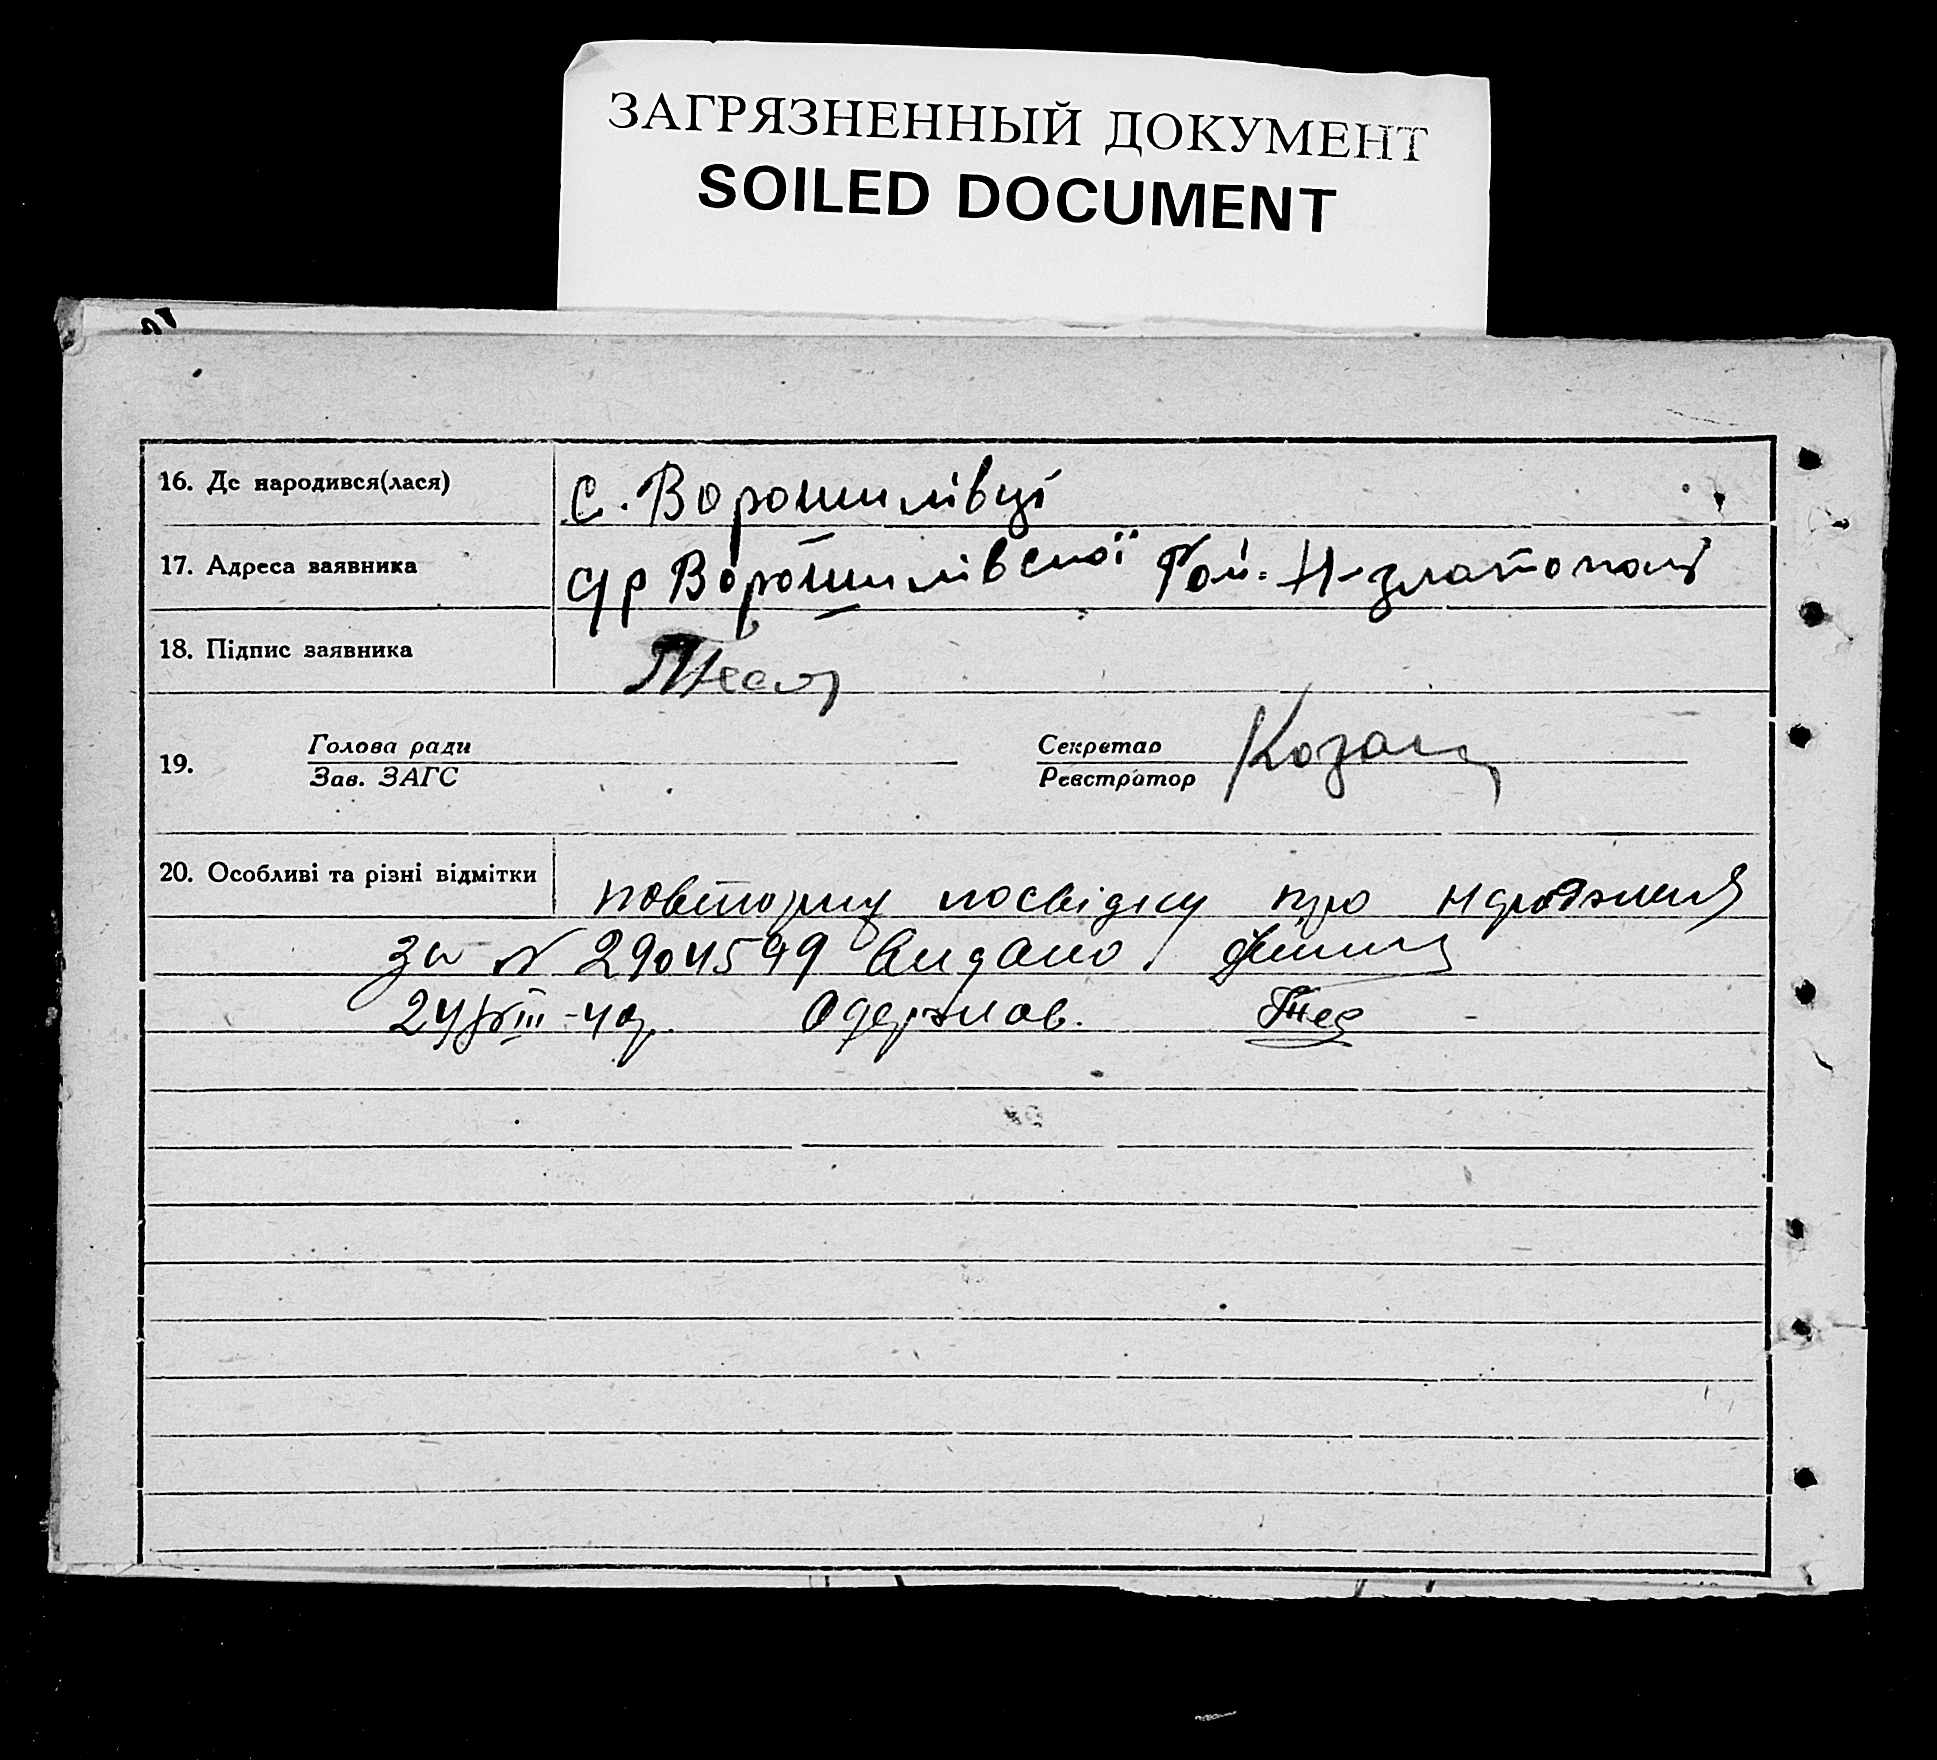 ЗАГРЯЗНЕННЫЙ ДОКУМЕНТ
SOILED DOCUMENT
16. Де народився(лася) с. Ворошилівці
17. Адреса заявника с/р Ворошилівської Рай. Н-златополь
18. Підпис заявника
19. Голова ради
Зав. ЗАГС
Секретар
Реєстратор
20. Особливі та різні відмітки повторну посвідку про народження
за № 2904599 видано
24/VIII-40р. Одержав.